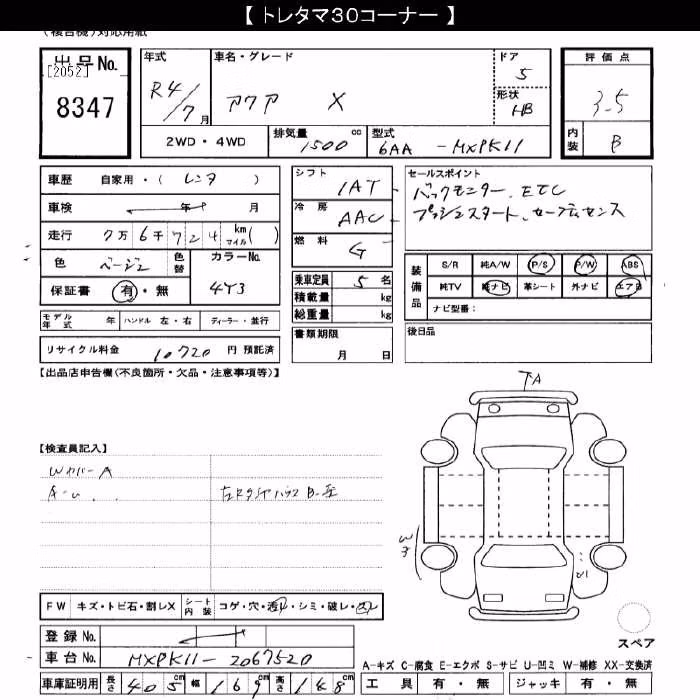 【 トレタマ30コーナー 】
(複合機)対応用紙
出品No.
[2052]
8347
年式
R4/7月
車名・グレード
アクア X
ドア
5
形状
HB
評価点
3.5
内装
B
2WD・4WD
排気量
1500 cc
型式
6AA-MXPK11
車歴 自家用・( レンタ )
車検 年 月
走行 7万6千724 km マイル( )
色 ベージュ 色替
カラーNo.
4Y3
保証書 有・無
シフト
IAT
冷房
AAC
燃料
G
乗車定員 5 名
積載量 kg
総重量 kg
セールスポイント
バックモニター、ETC
プッシュスタート、セーフティセンス
装備品
S/R 純A/W P/S P/W ABS
純TV 純ナビ 革シート 外ナビ エアB
ナビ型番:
モデル年式 年 ハンドル 左・右 ディーラー・並行
リサイクル料金 10720 円 預託済
書類期限
月 日
後日品
【出品店申告欄(不良箇所・欠品・注意事項等)】
【検査員記入】
WカバーA
左Rタイヤハウス B.
A
W3
FW キズ・トビ石・割レX シート内装 コゲ・穴・汚レ・シミ・破レ・スレ
登録No.
車台No. MXPK11-2067520
車庫証明用 長さ 405cm 幅 169cm 高さ 148cm
スペア
A-キズ C-腐食 E-エクボ S-サビ U-凹ミ W-補修 XX-交換済
工具 有・無 ジャッキ 有・無